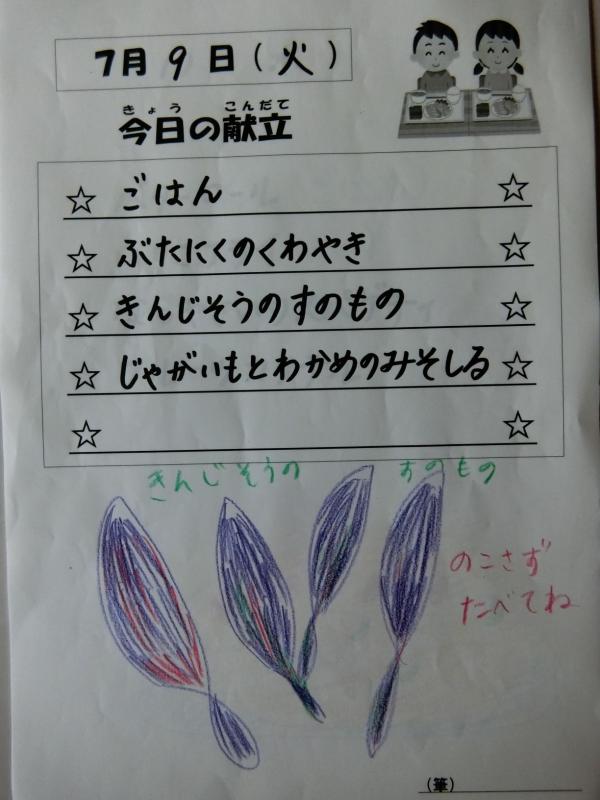 7月9日(火)
きょう こんだて
今日の献立
☆ ごはん ☆
☆ ぶたにくのくわやき ☆
☆ きんじそうのすのもの ☆
☆ じゃがいもとわかめのみそしる ☆
☆ ☆
きんじそうの すのもの
のこさず
たべてね
(筆)